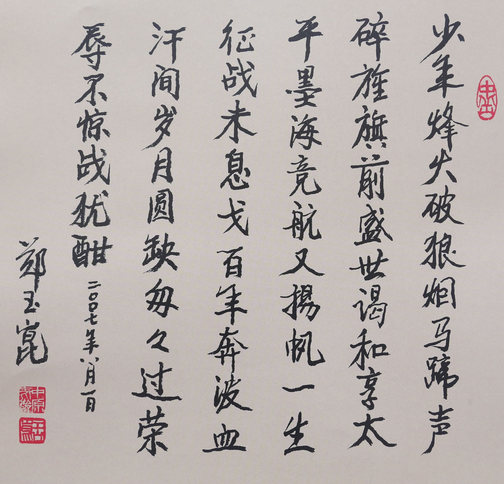 少年烽火破狼烟马蹄声
碎旌旗前盛世谒和享太
平墨海竞航又揚帆一生
征战未息戈百年奔波血
汗间岁月圆缺匆々过荣
辱不惊战犹酣
二〇〇七年八月一日
郑玉崑